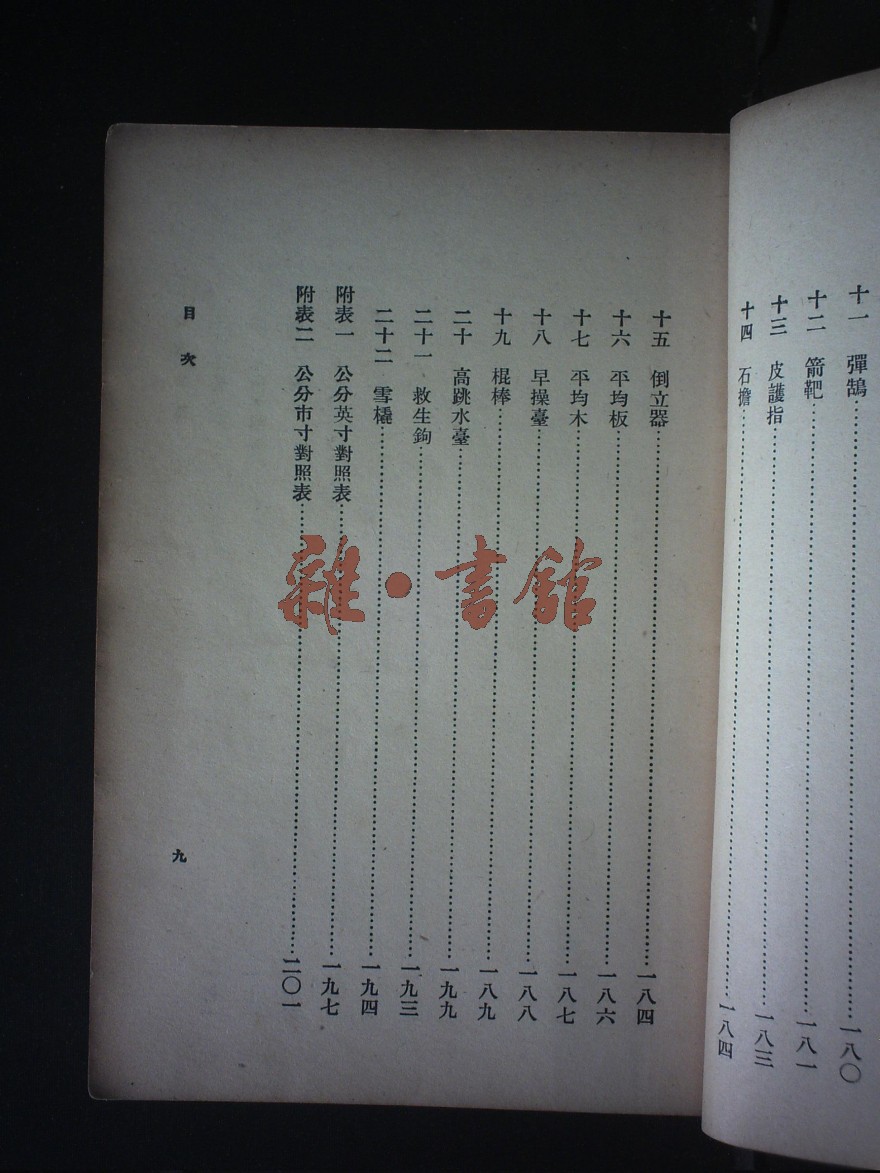 十一　彈鵠……一八〇
十二　箭靶……一八一
十三　皮護指……一八三
十四　石擔……一八四
十五　倒立器……一八四
十六　平均板……一八六
十七　平均木……一八七
十八　早操臺……一八八
十九　棍棒……一八九
二十　高跳水臺……一九九
二十一　救生鉤……一九三
二十二　雪橇……一九四
附表一　公分英寸對照表……一九七
附表二　公分市寸對照表……二〇一
目次
九
雜·書館